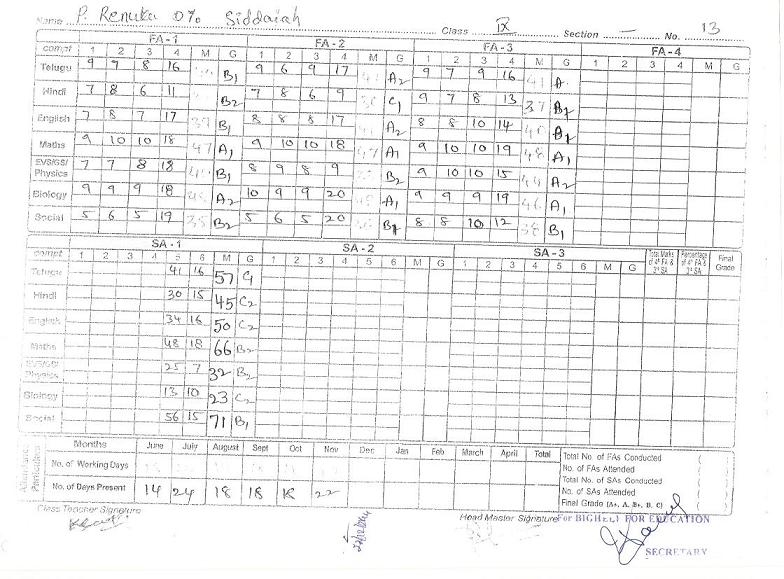 Name P. Renuka D/o Siddaiah Class IX Section - No. 13
compt FA-1 FA-2 FA-3 FA-4
1 2 3 4 M G 1 2 3 4 M G 1 2 3 4 M G 1 2 3 4 M G
Telugu 9 7 8 16 B1 9 6 9 17 A2 9 7 9 16 41 A
Hindi 7 8 6 11 B2 7 8 6 9 C1 9 7 8 13 37
English 7 8 7 17 37 B1 8 8 8 17 A2 8 8 10 14 40
Maths 9 10 10 18 47 A1 9 10 10 18 47 A1 9 10 10 19 48 A1
EVS/GS/ Physics 7 7 8 18 40 B1 8 9 8 9 B2 9 10 10 15 44 A2
Biology 9 9 9 18 A2 10 9 9 20 A1 9 9 9 19 46 A1
Social 5 6 5 19 35 B2 5 6 5 20 8 8 10 12 38 B1
compt SA-1 SA-2 SA-3 Total Marks of 4th FA & 3rd SA Percentage of 4th FA & 3rd SA Final Grade
1 2 3 4 5 6 M G 1 2 3 4 5 6 M G 1 2 3 4 5 6 M G
Telugu 41 16 57
Hindi 30 15 45 C2
English 34 16 50 C2
Maths 48 18 66 B2
EVS/GS/ Physics 25 7 32 B2
Biology 13 10 23 C2
Social 56 15 71 B1
Attendance Particulars
Months June July August Sept Oct Nov Dec Jan Feb March April Total
No. of Working Days
No. of Days Present 14 24 18 18 22
Total No. of FAs Conducted
No. of FAs Attended
Total No. of SAs Conducted
No. of SAs Attended
Final Grade (A+, A, B+, B, C)
Class Teacher Signature
Head Master Signature
For BIGHELP FOR EDUCATION
SECRETARY